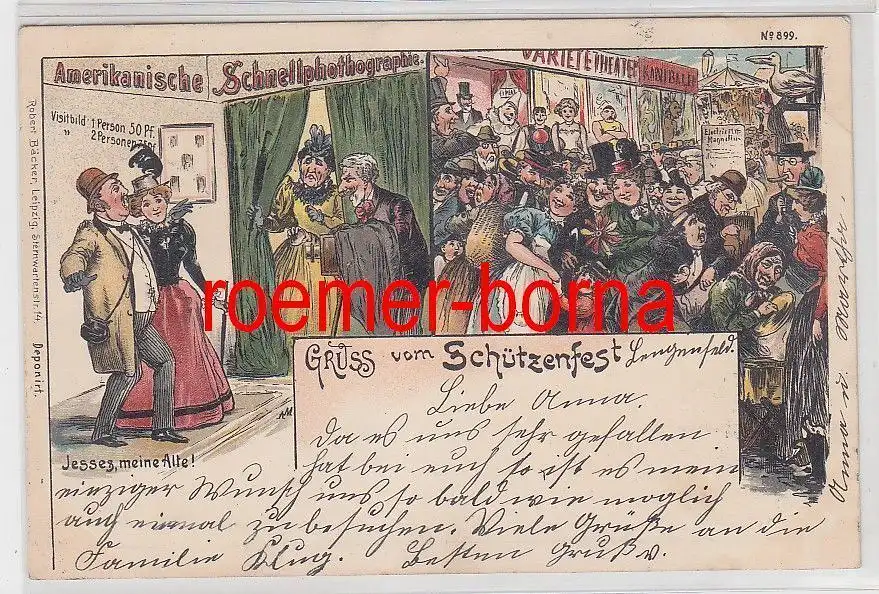 Nº 899.
Amerikanische Schnellphothographie.
VARIETETHEATER
Visitbild 1 Person 50 Pf.
" 2 Personen
Robert Bäcker, Leipzig, Sternwartenstr. 14. Deponirt.
roemer-borna
GRUSS vom Schützenfest Lengenfeld.
Jesses, meine Alte!
Liebe Anna.
Da es uns sehr gefallen
hat bei euch so ist es mein
einziger Wunsch uns so bald wie moglich
auch einmal zu besuchen. Viele Grüße an die
Familie Klug. Besten Gruß v.
Anna u. Martha.